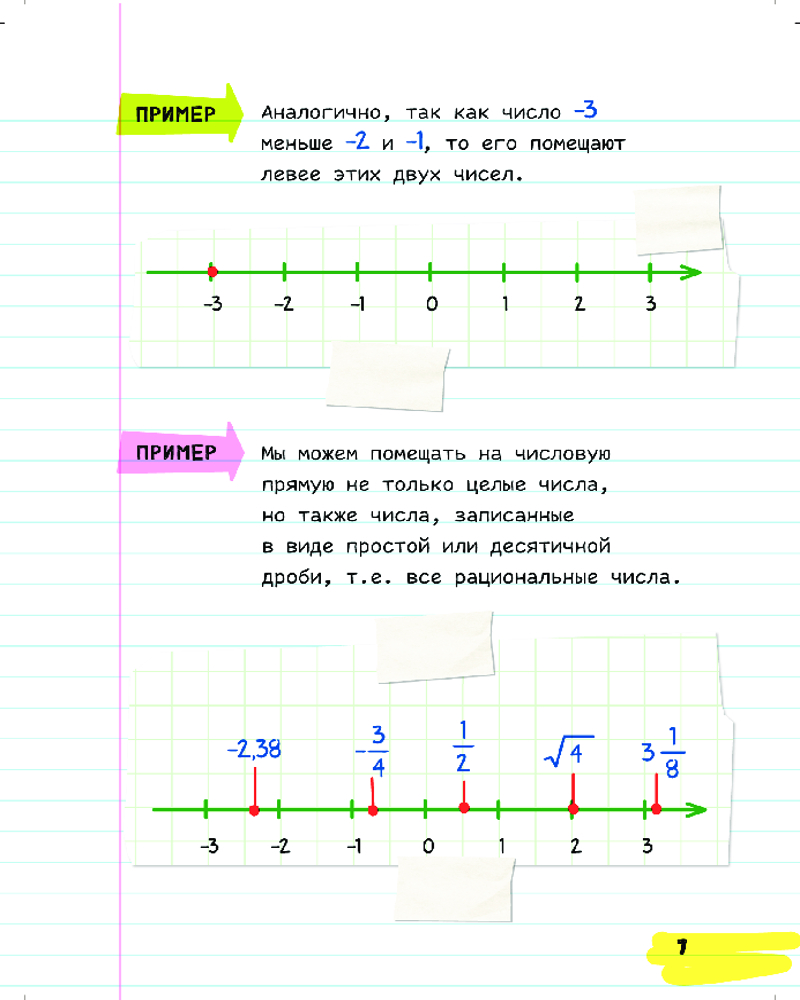 ПРИМЕР
Аналогично, так как число -3
меньше -2 и -1, то его помещают
левее этих двух чисел.
-3 -2 -1 0 1 2 3
ПРИМЕР
Мы можем помещать на числовую
прямую не только целые числа,
но также числа, записанные
в виде простой или десятичной
дроби, т.е. все рациональные числа.
-2,38 -3/4 1/2 √4 3 1/8
-3 -2 -1 0 1 2 3
7